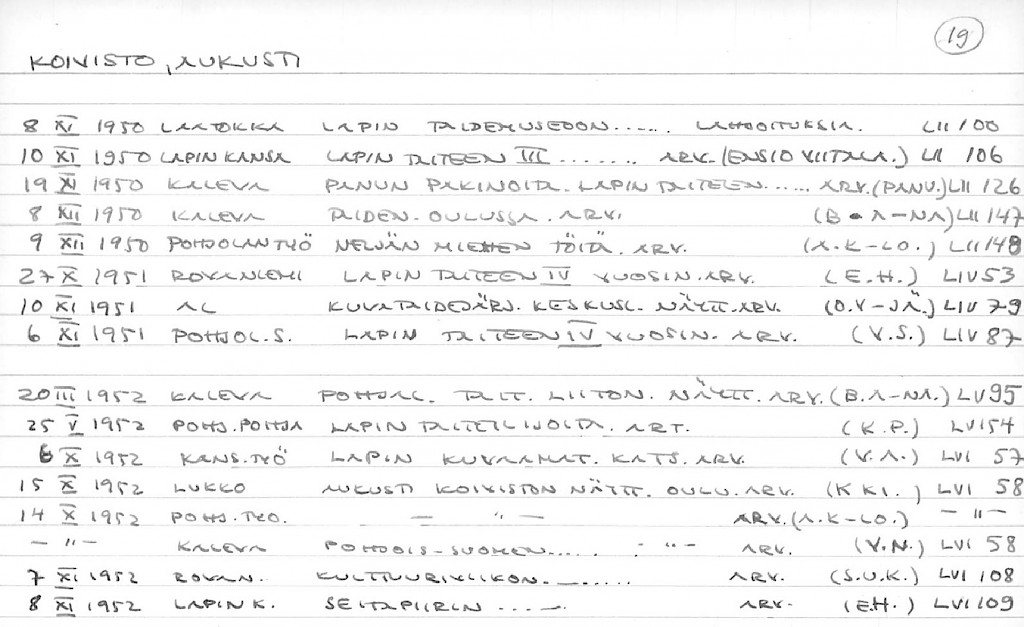 19
KOIVISTO, AUKUSTI
8 XI 1950 LAATOKKA LAPIN TAIDEMUSEOON...... LAHJOITUKSIA. LII/00
10 XI 1950 LAPIN KANSA LAPIN TAITEEN III ....... ARV. (ENSIO VIITALA.) LII 106
19 XI 1950 KALEVA PANUN PAKINOITA. LAPIN TAITEEN..... ARV. (PANU.) LII 126
8 XII 1950 KALEVA TAIDEN. OULUSSA. ARV. (B A-NA) LII 147
9 XII 1950 POHJOLAN TYÖ NELJÄN MIEHEN TÖITÄ. ARV. (A.K-LO.) LII 148
27 X 1951 ROVANIEMI LAPIN TAITEEN IV VUOSIN. ARV. (E.H.) LIV 53
10 XI 1951 AL KUVATAIDEJÄRJ. KESKUSL. NÄYTT. ARV. (O.V-JÄ.) LIV 79
6 XI 1951 POHJOL.S. LAPIN TAITEEN IV VUOSIN. ARV. (V.S.) LIV 87
20 III 1952 KALEVA POHJAL. TAIT. LIITON. NÄYTT. ARV. (B.A-NA.) LV 95
25 V 1952 POHJ. POHJA LAPIN TAITEILIJOITA. ART. (K.P.) LV 154
6 X 1952 KANS. TYÖ LAPIN KUVAAMAT. KATS. ARV. (V.A.) LVI 57
15 X 1952 LUKKO AUKUSTI KOIVISTON NÄYTT. OULU. ARV. (K KI.) LVI 58
14 X 1952 POHJ. TYO. — " — ARV. (A.K-LO.) — " —
— " — KALEVA POHJOIS-SUOMEN..... - " - ARV. (V.N.) LVI 58
7 XI 1952 ROVAN. KULTTUURIVIIKON....... ARV. (S.U.K.) LVI 108
8 XI 1952 LAPIN K. SEITAPIIRIN .... ARV. (EH.) LVI 109